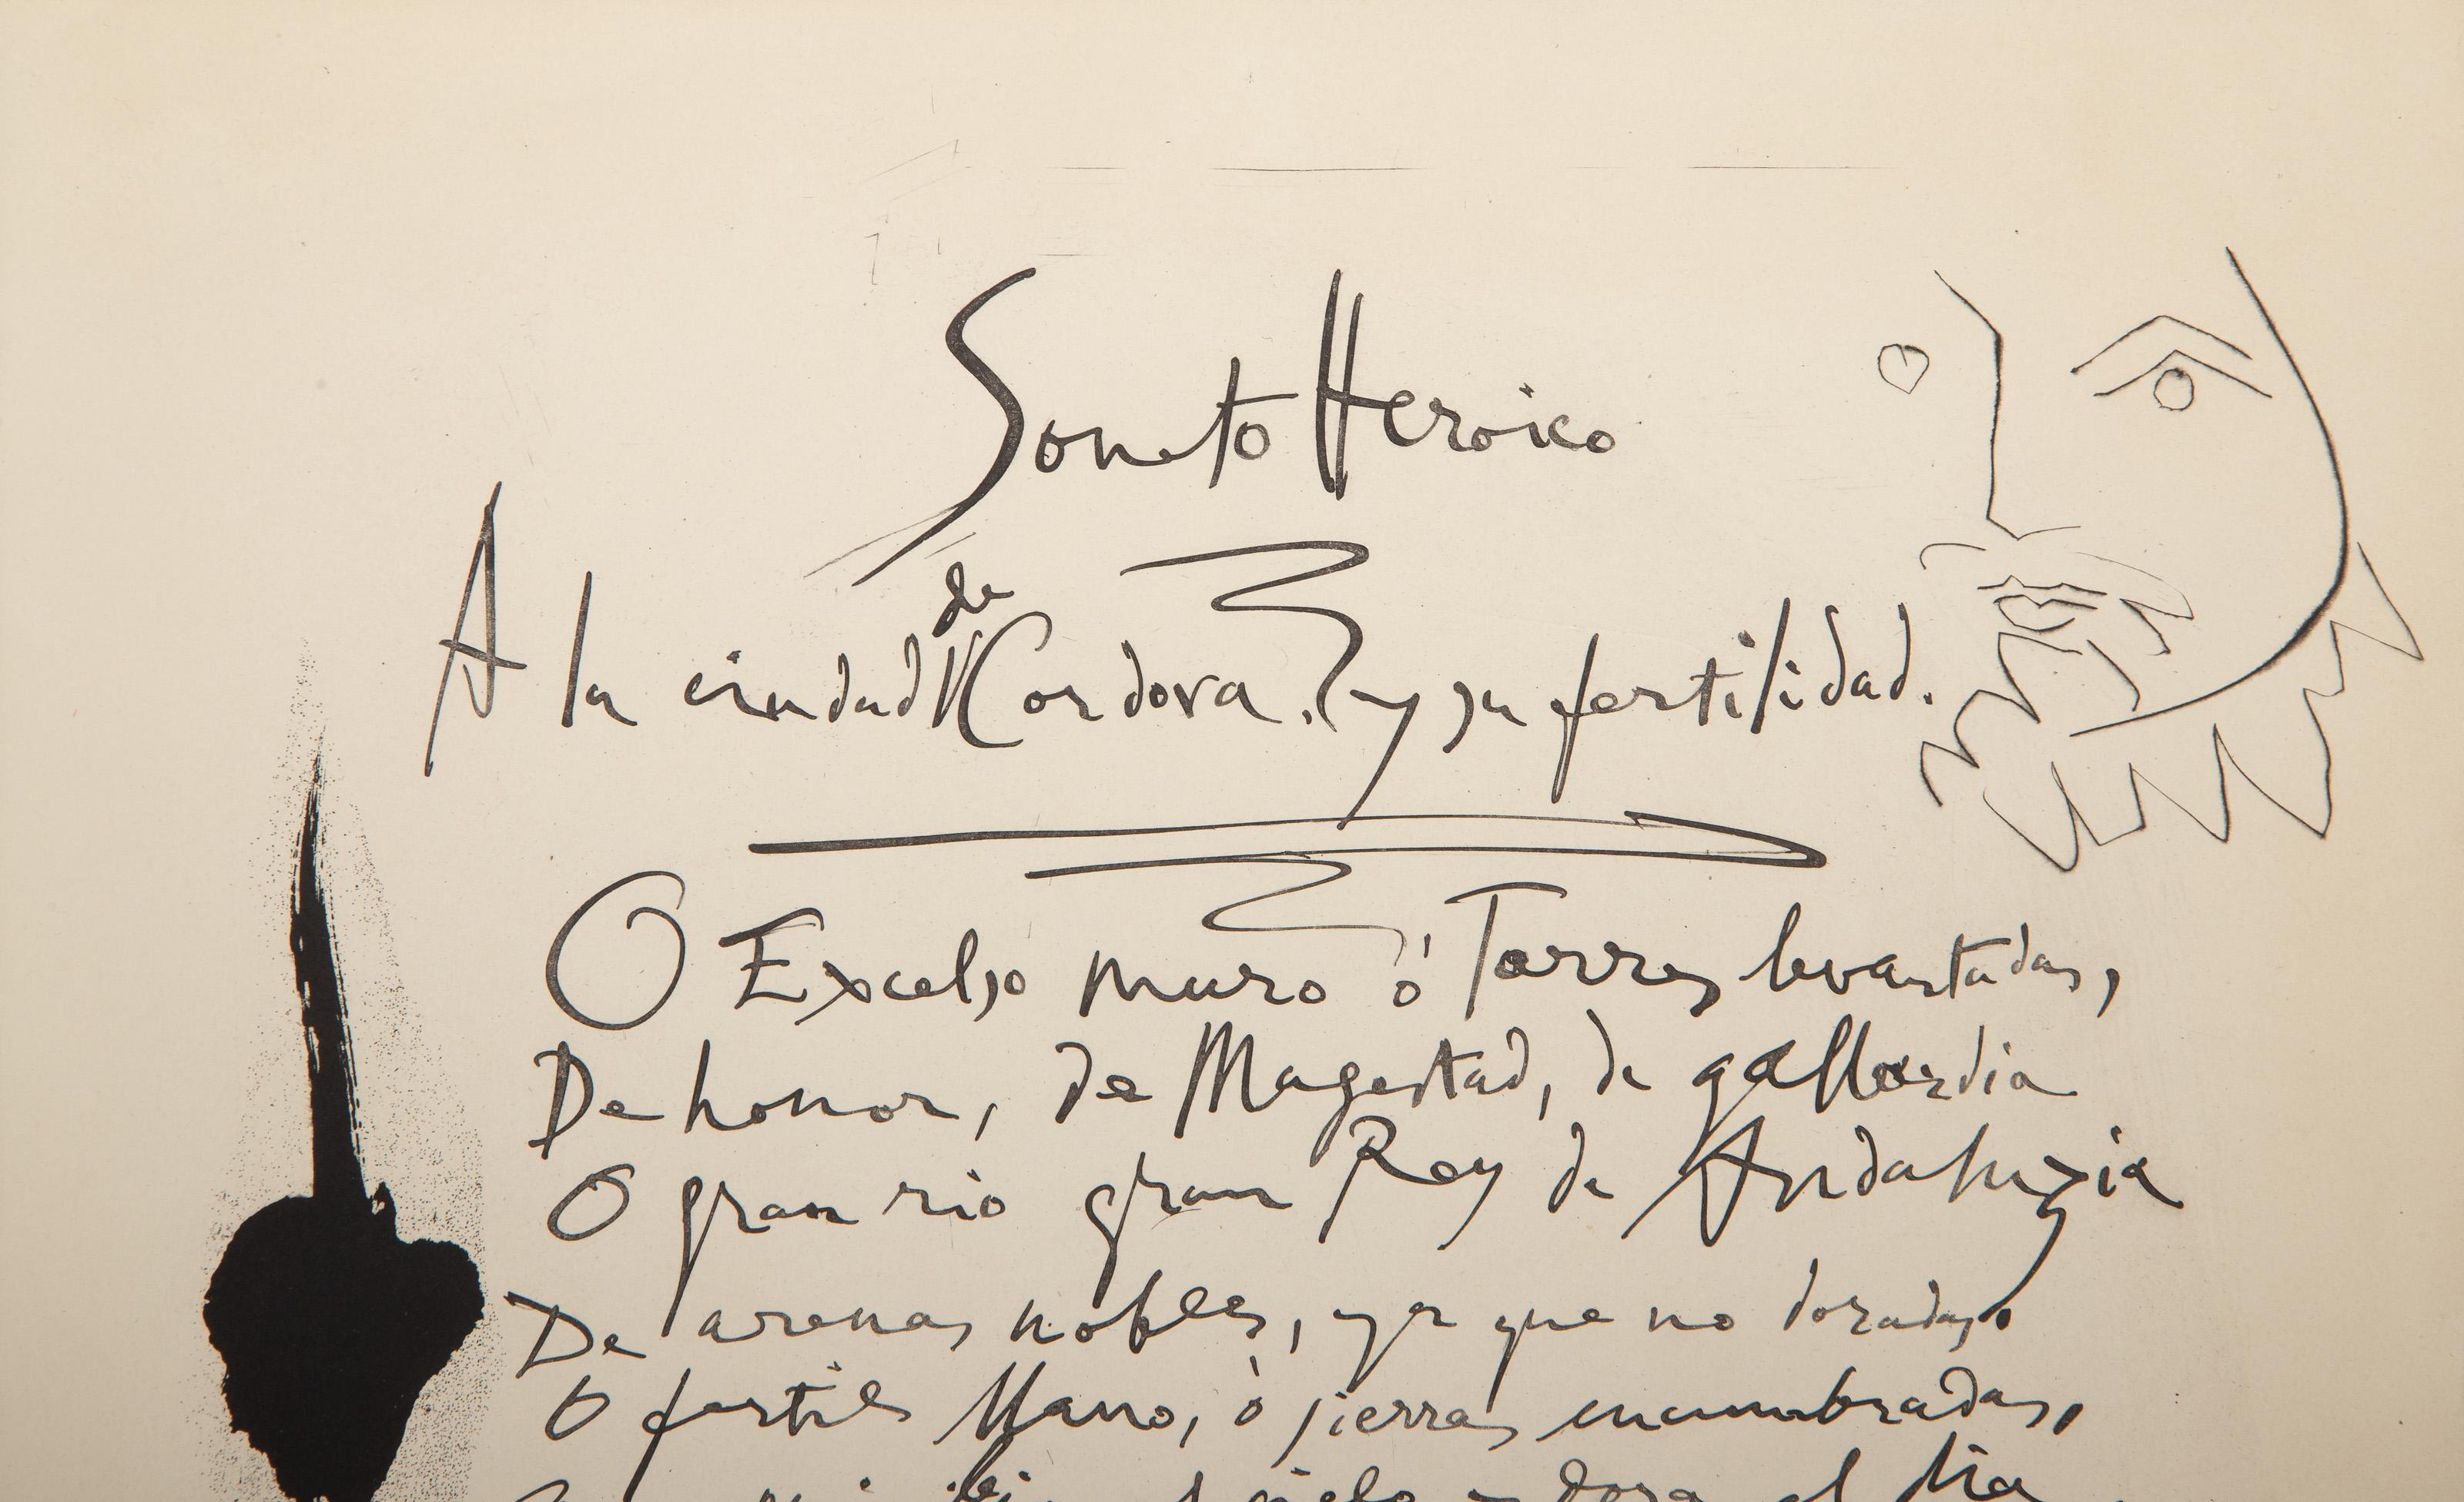 Soneto Heroico
A la ciudad de Cordova. y su fertilidad.
O Excelso muro ó Torres levantadas,
De honor, de Magestad, de gallardia
O gran rio gran Rey de Andaluzia
De arenas nobles, ya que no doradas.
O fertil llano, ó sierras encumbradas,
el cielo y dora el dia